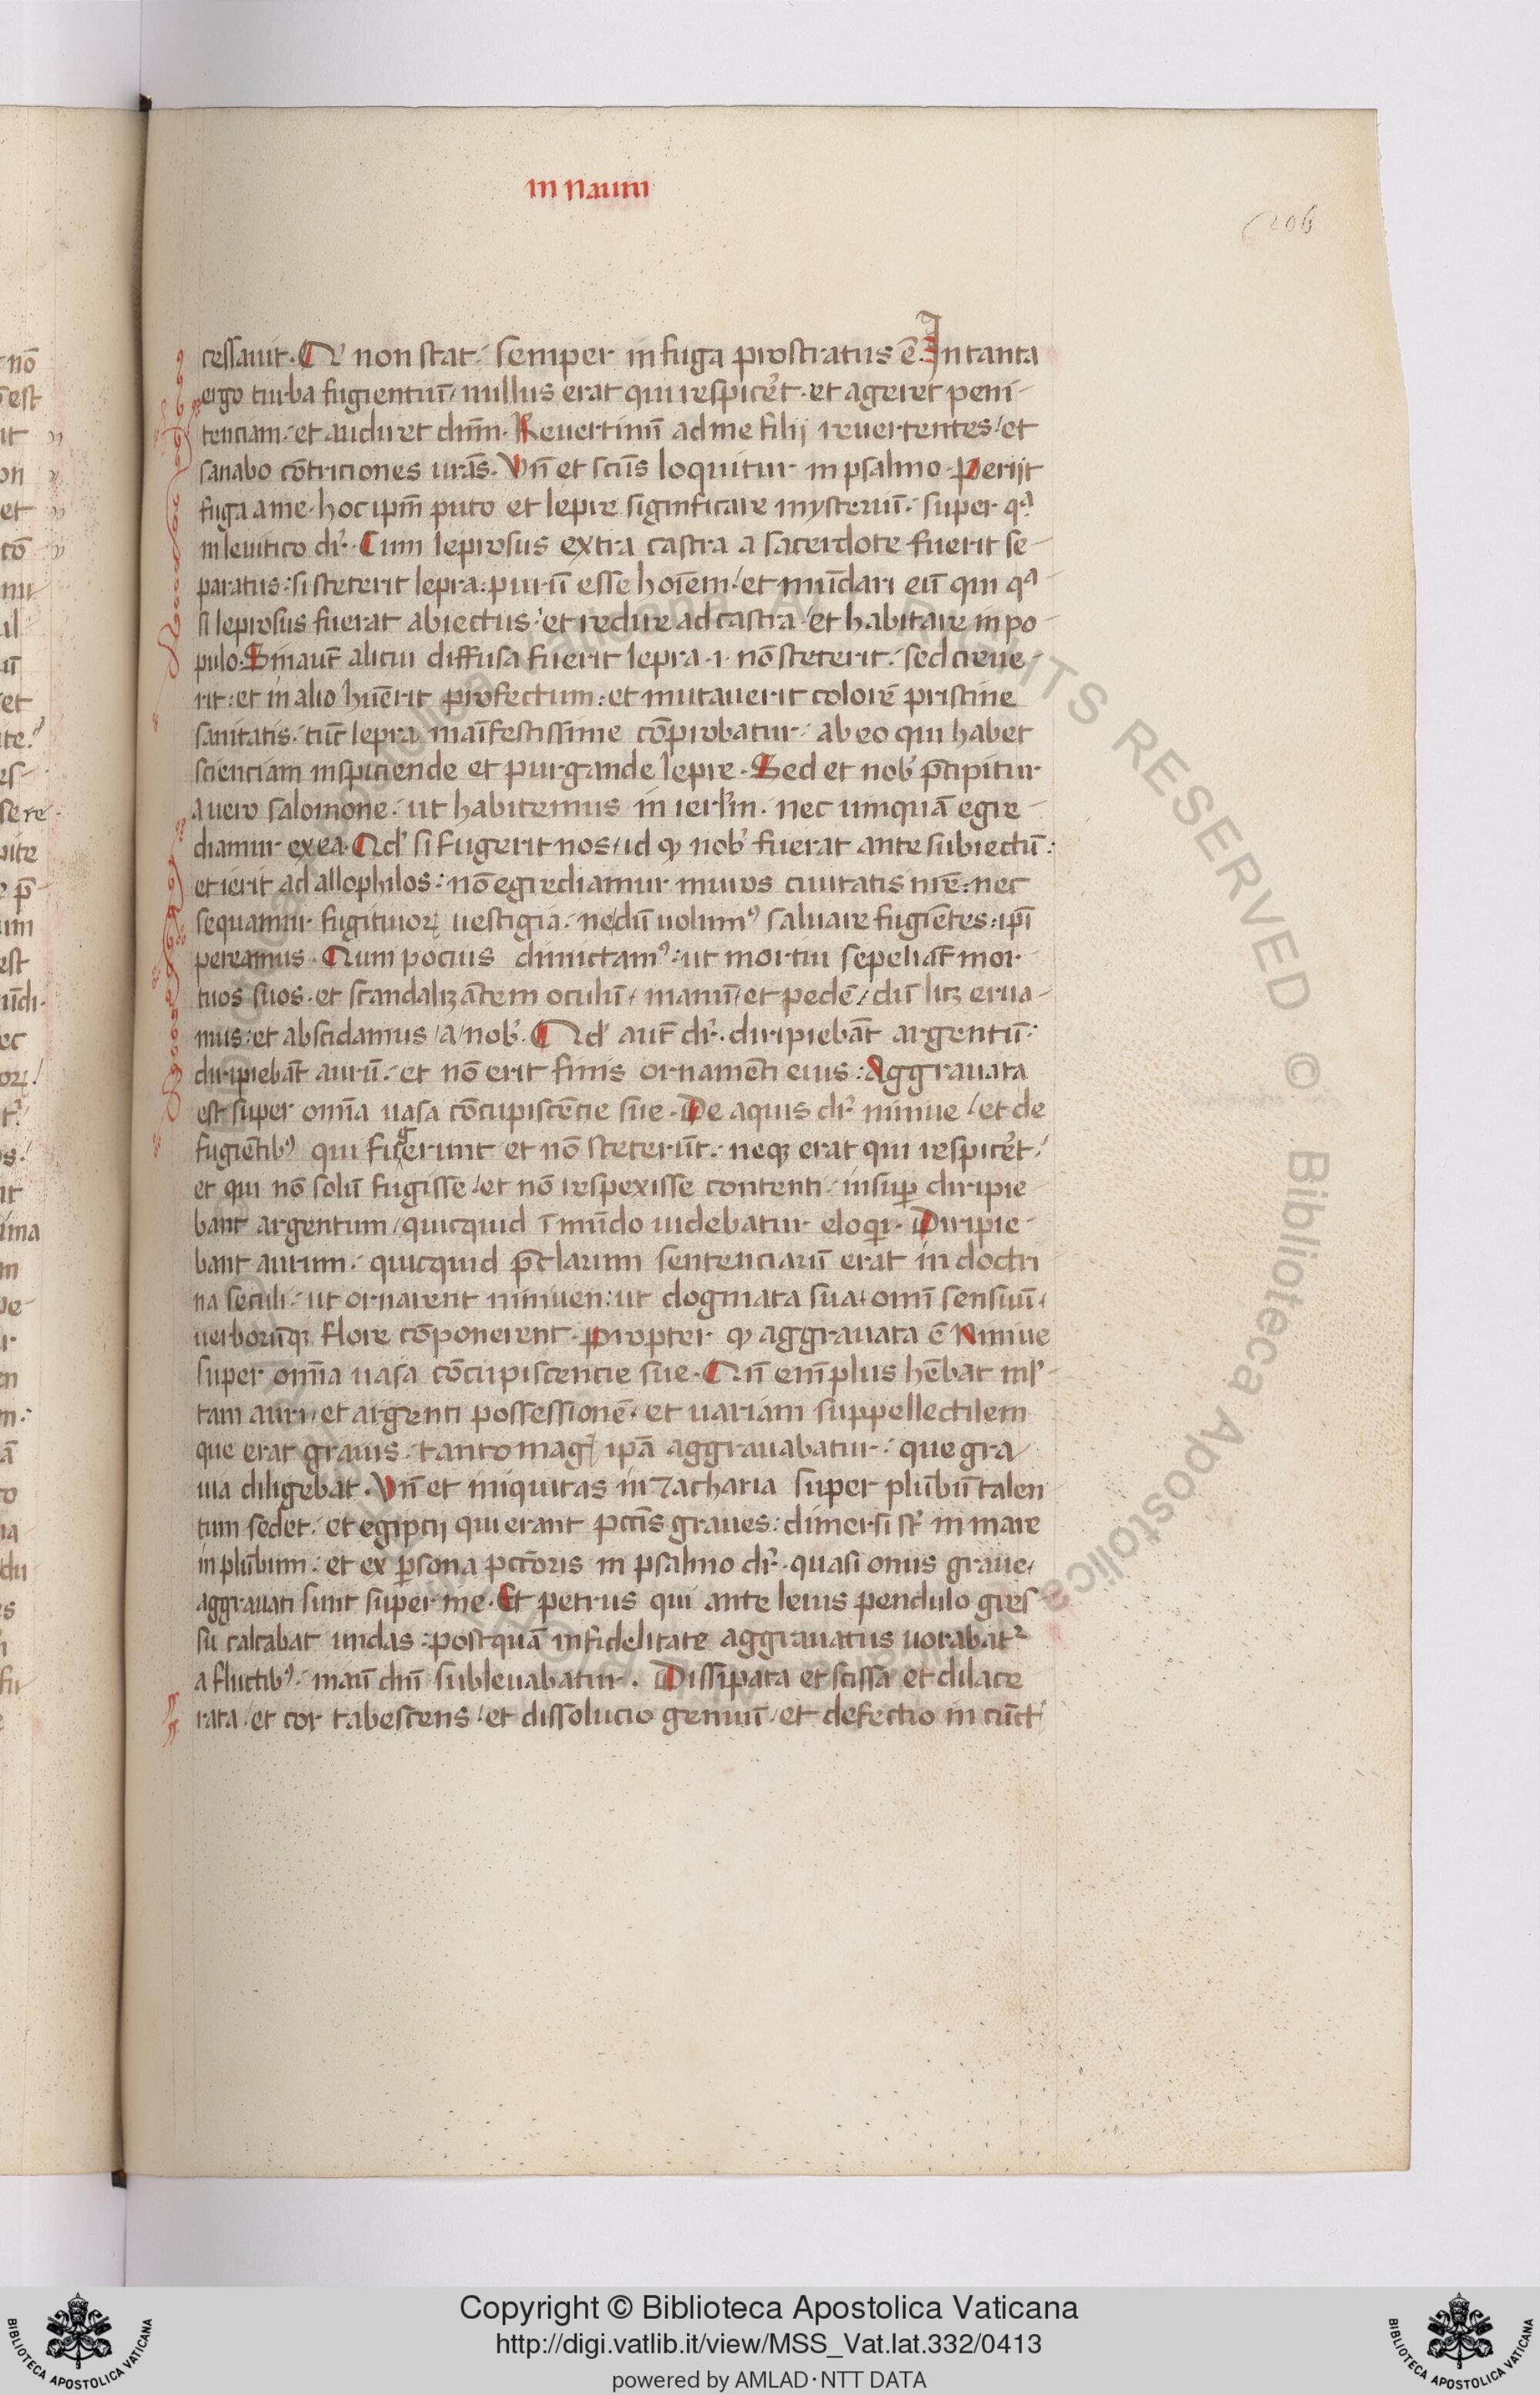 in naum
206
cessauit. Qi non stat: semper in fuga prostratus ē. In tanta
ergo turba fugientiū/ nullus erat qui respic̉et. et ageret peni-
tenciam: et audiret dn̄m. Reuertimī ad me filij reuertentes/ et
sanabo cōtriciones ur̄as. Vn̄ et scūs loquitur in psalmo. Perijt
fuga a me. hoc ipm̄ puto et lepre significare mysteriū. super qa
in leuitico dr̉. Cum leprosus extra castra a sacerdote fuerit se-
paratus: si steterit lepra: purū esse hoīem/ et mūdari eū qui qa
si leprosus fuerat abiectus/ et redire ad castra/ et habitare in po-
pulo. Sin aut̄ alicui diffusa fuerit lepra .i. nō steterit: sed creue-
rit: et in alio hūerit profectum: et mutauerit colorē pristine
sanitatis: tūc lepra maīfestissime cōprobatur: ab eo qui habet
scienciam inspiciende et purgande lepre. Sed et nob̉ p̄cipitur
a uero salomone: ut habitemus in ierl̄m. nec umquā egre-
diamur ex ea. Qd̉ si fugerit nos/ id qđ nob̉ fuerat ante subiectū:
et ierit ad allophilos: nō egrediamur muros ciuitatis nr̄e: nec
sequamur fugitiuoꝝ uestigia. ne/ dū uolumꝰ saluare fugiētes: ipī
pereamus. Quin pocius dimictamꝰ: ut mortui sepeliāt mor-
tuos suos. et scandalizātem oculū/ manū/ et pedē/ dū licꝫ erua-
mus: et abscidamus /a/ nob̉. Qd̉ aut̄ dr̉. diripiebāt argentū:
diripiebāt aurū: et nō erit finis ornamēti eius: Aggrauata
est super om̄ia uasa cōcupiscēcie sue. De aquis dr̉ niniue/ et de
fugiētibꝰ qui fugerunt et nō steterūt: neqꝫ erat qui respic̉et/
et qui nō solū fugisse/ et nō respexisse contenti: insuꝑ diripie-
bant argentum/ quicquid ī mūdo uidebatur eloqui. Diripie-
bant aurum: quicquid p̄clarum sentenciarū erat in doctri
na seculi: ut ornarent niniuen: ut dogmata sua/ omī sensuū/
uerborūqꝫ flore cōponerent. Propter qđ aggrauata ē Niniue
super om̄ia uasa cōcupiscencie sue. Qn̄ enī plus hēbat mł-
tam auri/ et argenti possessionē: et uariam suppellectilem
que erat grauis: tanto mag̉ ipā aggrauabatur: que gra
uia diligebat. Vn̄ et iniquitas in zacharia super plūbū talen
tum sedet: et egiptij qui erant pcc̄is graues: dimersi st̉ in mare
in plūbum: et ex ꝑsona pcc̄oris in psalmo dr̉. quasi onus graue/
aggrauati sunt super me. Et petrus qui ante leuis pendulo gres-
su calcabat undas: postquā infidelitate aggrauatus uorabat̉
a fluctibꝰ: manū dn̄i subleuabatur. Dissipata et scissa et dilace
rata/ et cor tabescens/ et dissolucio genuū/ et defectio in cūct
Copyright © Biblioteca Apostolica Vaticana
http://digi.vatlib.it/view/MSS_Vat.lat.332/0413
powered by AMLAD·NTT DATA